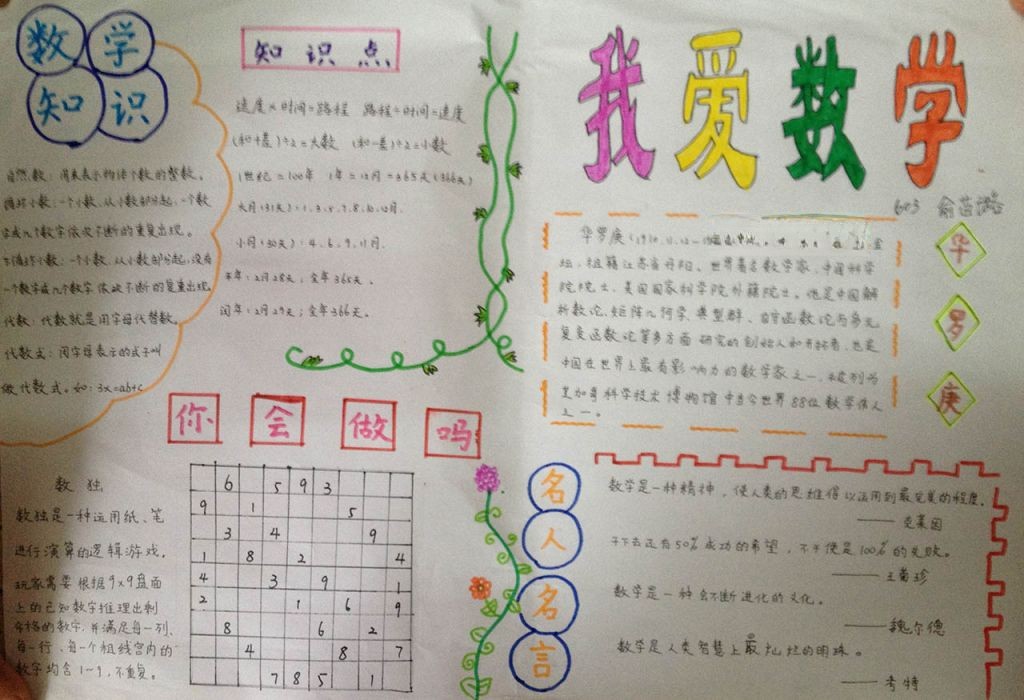 数学
知识
自然数：用来表示物体个数的整数。
循环小数：一个小数，从小数部分起，一个数
字或几个数字依次不断的重复出现。
不循环小数：一个小数，从小数部分起，没有
一个数字或几个数字依次不断的重复出现
代数：代数就是用字母代替数。
代数式：用字母表示的式子叫
做代数式。如：3x=ab+c
知识点
速度×时间=路程 路程÷时间=速度
(和+差)÷2=大数 (和-差)÷2=小数
1世纪=100年 1年=12月=365天(366天)
大月(31天)：1、3、5、7、8、10、12月.
小月(30天)：4、6、9、11月.
平年：2月28天；全年365天。
闰年：2月29天；全年366天。
我爱数学
603
华罗庚
华罗庚(1910.11.12—
坛，祖籍江苏省丹阳。世界著名数学家，中国科学
院院士，美国国家科学院外籍院士。他是中国解
析数论、矩阵几何学、典型群、自守函数论与多元
复变函数论等多方面研究的创始人和开拓者，也是
中国在世界上最有影响力的数学家之一，被列为
芝加哥科学技术博物馆中当今世界88位数学伟人
之一。
你会做吗
数独
数独是一种运用纸、笔
进行演算的逻辑游戏。
玩家需要根据9×9盘面
上的已知数字推理出剩
余格的数字，并满足每一列、
每一行、每一个粗线宫内的
数字均含1~9，不重复。
6 5 9 3
9 1 5
3 4 9
1 8 2 4
4 3 9 1
2 1 6 9
8 6 2
4 8 7
7 8 5 1
名人名言
数学是一种精神，使人类的思维得以运用到最完美的程度.
——克莱因
干下去还有50%成功的希望，不干便是100%的失败。
——王菊珍
数学是一种会不断进化的文化。
——魏尔德
数学是人类智慧上最灿烂的明珠。
——考特